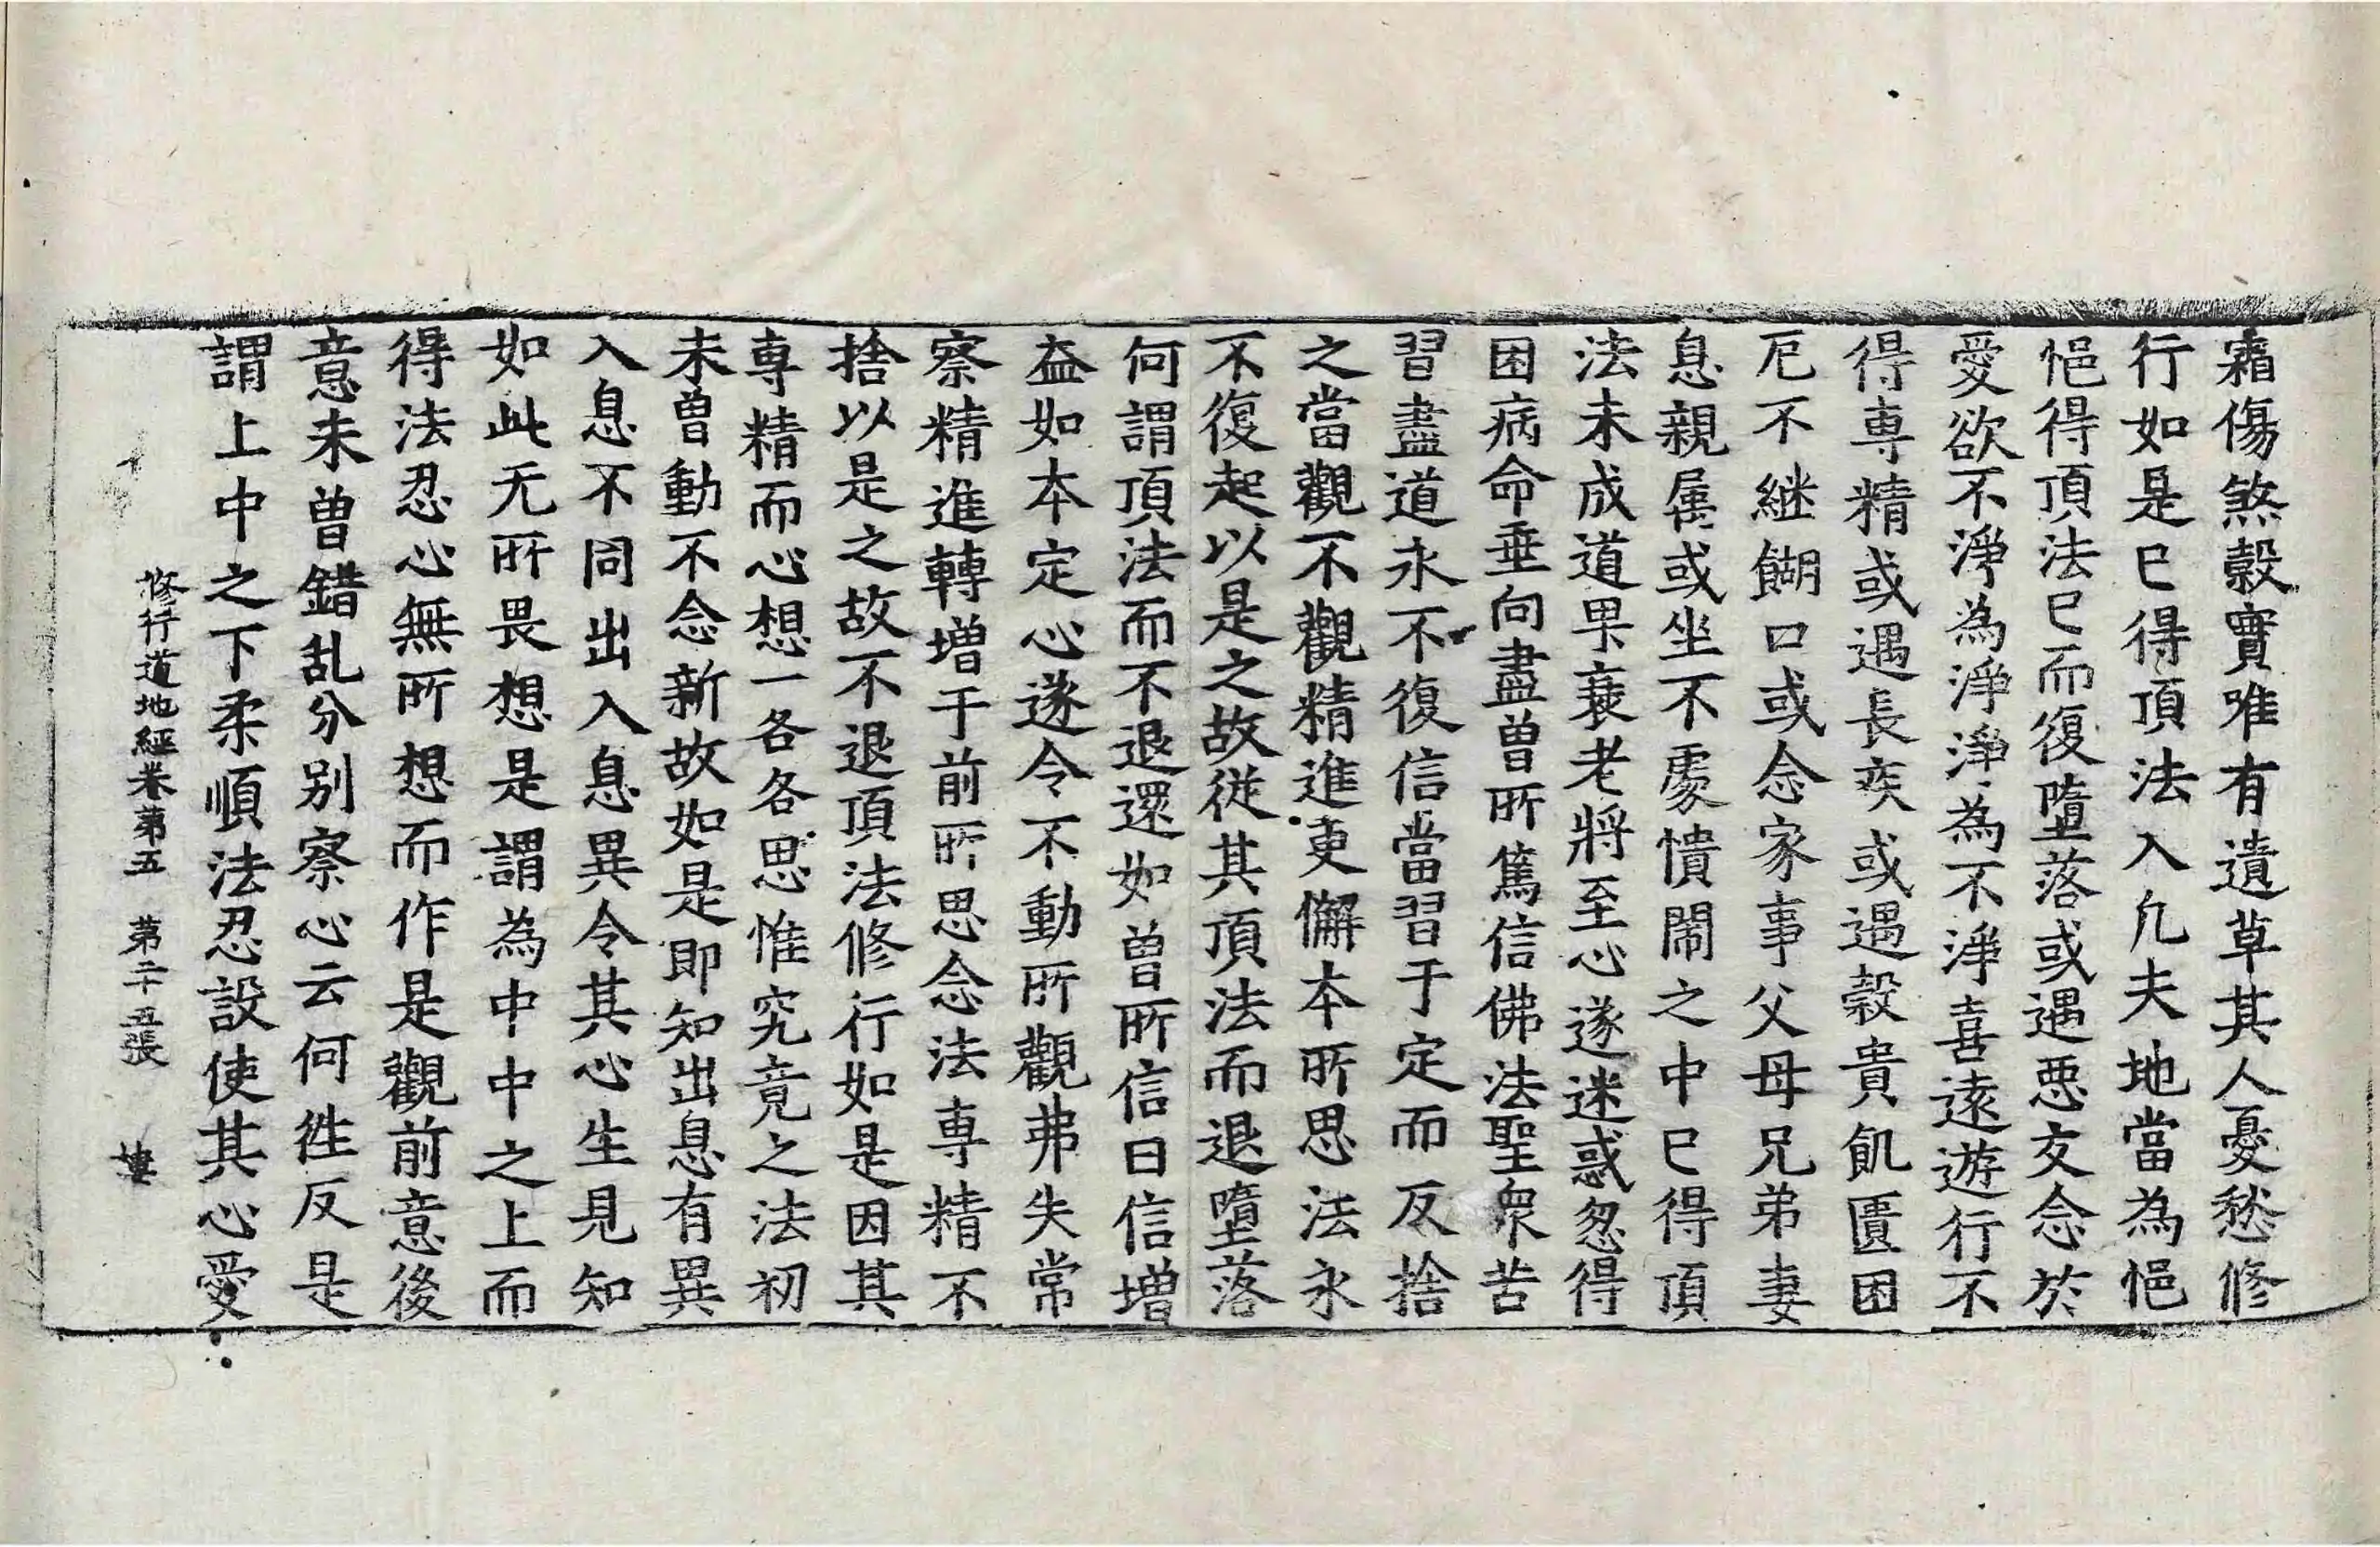 霜傷煞穀實唯有遺草其人憂愁修
行如是巳得頂法入凢夫地當為悒
悒得頂法巳而復墮落或遇惡友念於
愛欲不淨為淨淨為不淨喜遠遊行不
得専精或遇長疾或遇穀貴飢匱困
厄不継餬口或念家事父母兄弟妻
息親属或坐不䖏憒閙之中巳得頂
法未成道果衰老將至心遂迷惑忽得
困病命垂向盡曽所篤信佛法聖衆苦
習盡道永不復信當習于定而反捨
之當觀不觀精進更懈本所思法永
不復起以是之故従其頂法而退墮落
何謂頂法而不退還如曽所信日信増
益如本定心遂令不動所觀弗失常
察精進轉増于前所思念法専精不
捨以是之故不退頂法修行如是因其
専精而心想一各各思惟究竟之法初
未曽動不念新故如是即知出息有異
入息不同出入息異令其心生見知
如此无所畏想是謂為中中之上而
得法忍心無所想而作是觀前意後
意未曽錯乱分别察心云何徃反是
謂上中之下柔順法忍設使其心愛
修行道地經卷第五　第二十五張